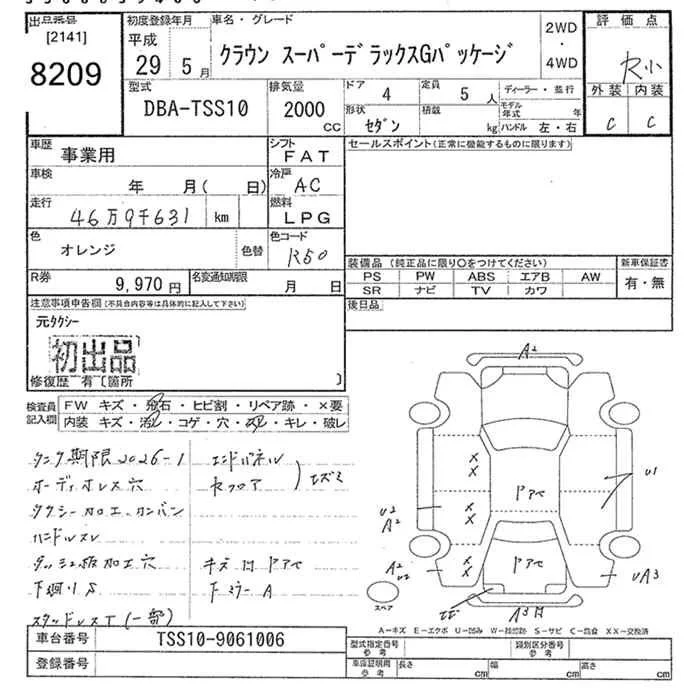 出品番号
[2141]
8209
初度登録年月
平成
29 5月
車名・グレード
クラウン スーパーデラックスGパッケージ
2WD
・
4WD
評価点
R小
外装 内装
C C
型式
DBA-TSS10
排気量
2000
cc
ドア 4
定員 5 人
形状 セダン
積載 kg
ディーラー・並行
モデル年式 年
ハンドル 左・右
車歴 事業用
シフト FAT
車検 年 月( 日)
冷房 AC
走行 46万9千631 km
燃料 LPG
色 オレンジ 色替
色コード R50
R券 9,970円
名変通知期限 月 日
セールスポイント(正常に機能するものに限ります)
装備品 (純正品に限り○をつけてください)
新車保証書
PS PW ABS エアB AW
有・無
SR ナビ TV カワ
後日品
注意事項申告欄(不具合内容等は具体的に記入して下さい)
元タクシー
初出品
修復歴 有〔箇所 〕
検査員記入欄
FW キズ・飛石・ヒビ割・リペア跡・×要
内装 キズ・汚レ・コゲ・穴・スレ・キレ・破レ
タンク期限2026-1
エンドパネル
オーディオレス穴
セフロア
タクシー加工・カンバン
ハンドルスレ
ダッシュ板加工穴
キズ凹ドアベ
下廻りS
下ミラーA
スタッドレスT(一部)
A2
× ×
ドアベ
U1
U2
A2
× ×
A2
U2
× ×
ドアベ
UA3
スペア
A3凹
A-キズ E-エクボ U-凹み W-補修跡 S-サビ C-腐食 XX-交換済
車台番号 TSS10-9061006
登録番号
型式指定番号 参考
類別区分番号 参考
車庫証明用 参考
長さ cm
幅 cm
高さ cm